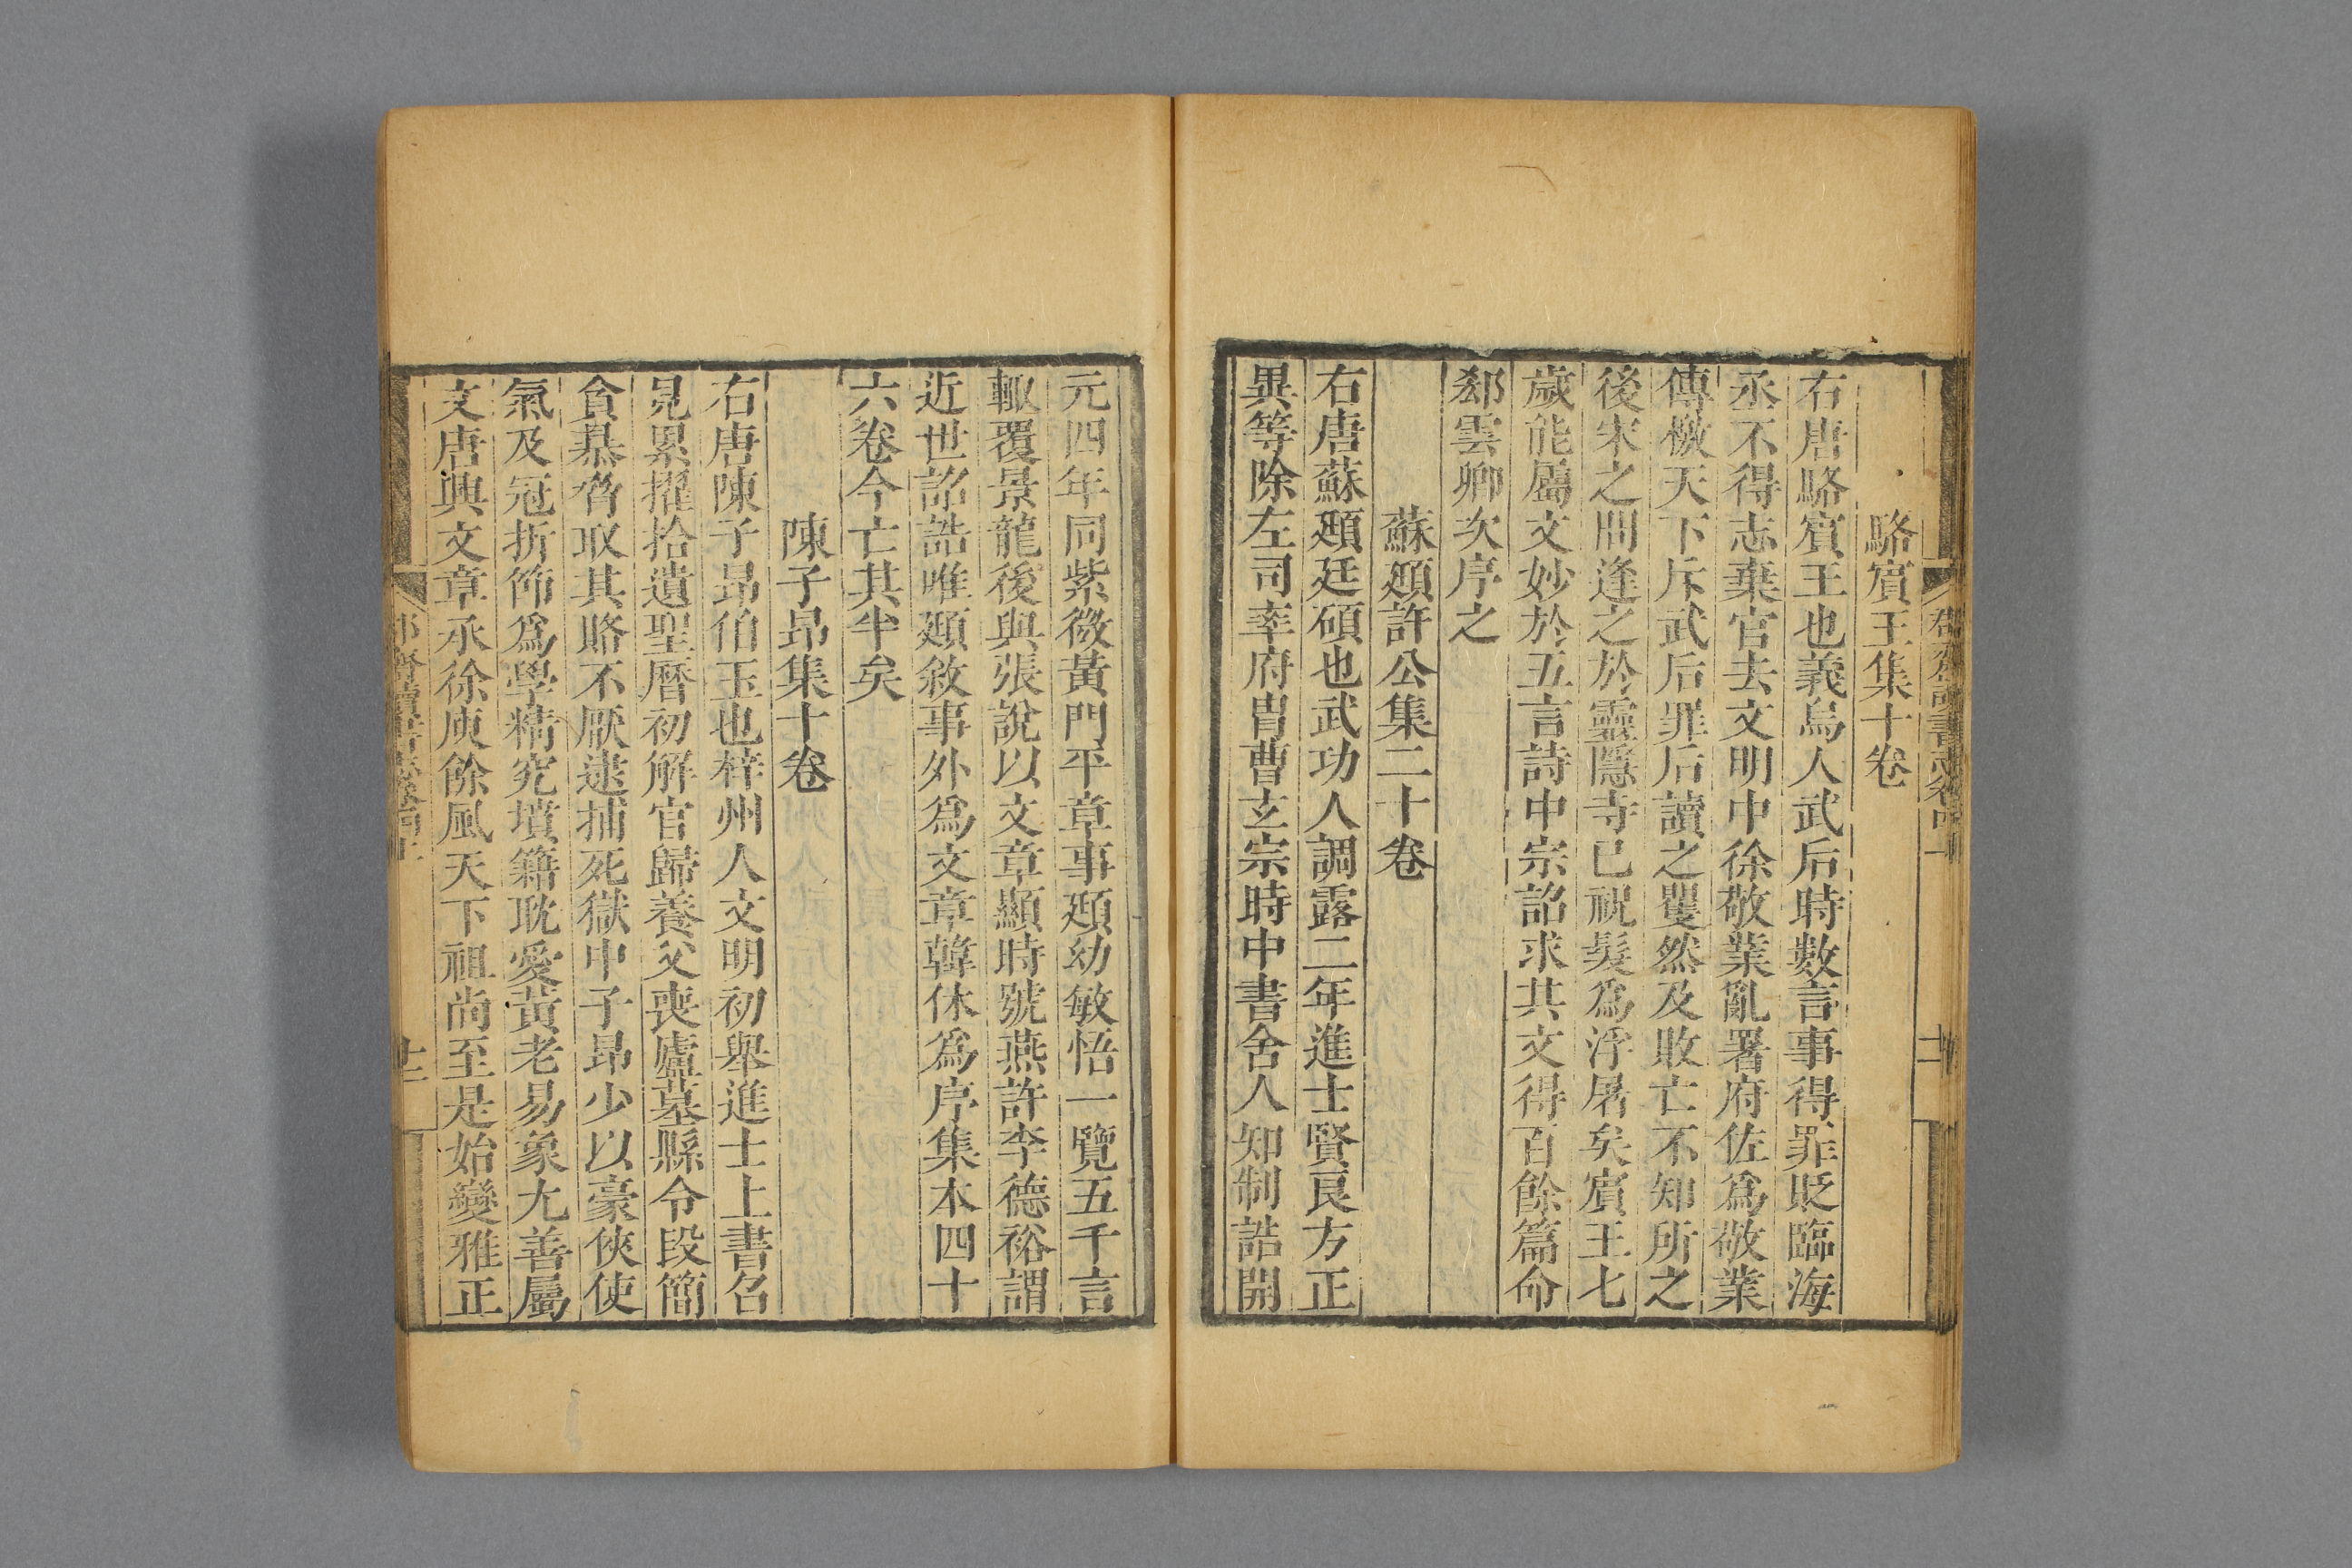 駱賓王集十卷
右唐駱賓王也義烏人武后時數言事得罪貶臨海
丞不得志棄官去文明中徐敬業亂署府佐爲敬業
傳檄天下斥武后罪后讀之矍然及敗亡不知所之
後宋之問逢之於靈隱寺已祝髮爲浮屠矣賓王七
歲能屬文妙於五言詩中宗詔求其文得百餘篇命
郄雲卿次序之
蘇頲許公集二十卷
右唐蘇頲廷碩也武功人調露二年進士賢良方正
異等除左司率府胄曹玄宗時中書舍人知制誥開
元四年同紫微黃門平章事頲幼敏悟一覽五千言
輙覆景龍後與張說以文章顯時號燕許李德裕謂
近世詔誥唯頲敘事外爲文章韓休爲序集本四十
六卷今亡其半矣
陳子昂集十卷
右唐陳子昂伯玉也梓州人文明初舉進士上書召
見累擢拾遺聖曆初解官歸養父喪廬墓縣令段簡
貪暴脅取其賂不厭逮捕死獄中子昂少以豪俠使
氣及冠折節爲學精究墳籍耽愛黃老易象尤善屬
文唐興文章承徐庾餘風天下祖尚至是始變雅正